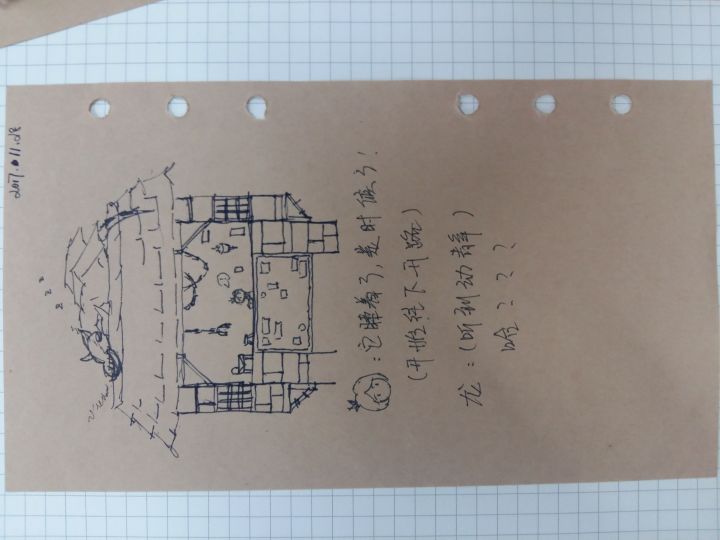 2017.11.08
z z z
：它睡着了，是时候了！
（开始往下开路）
龙：（听到动静）
哈？？？